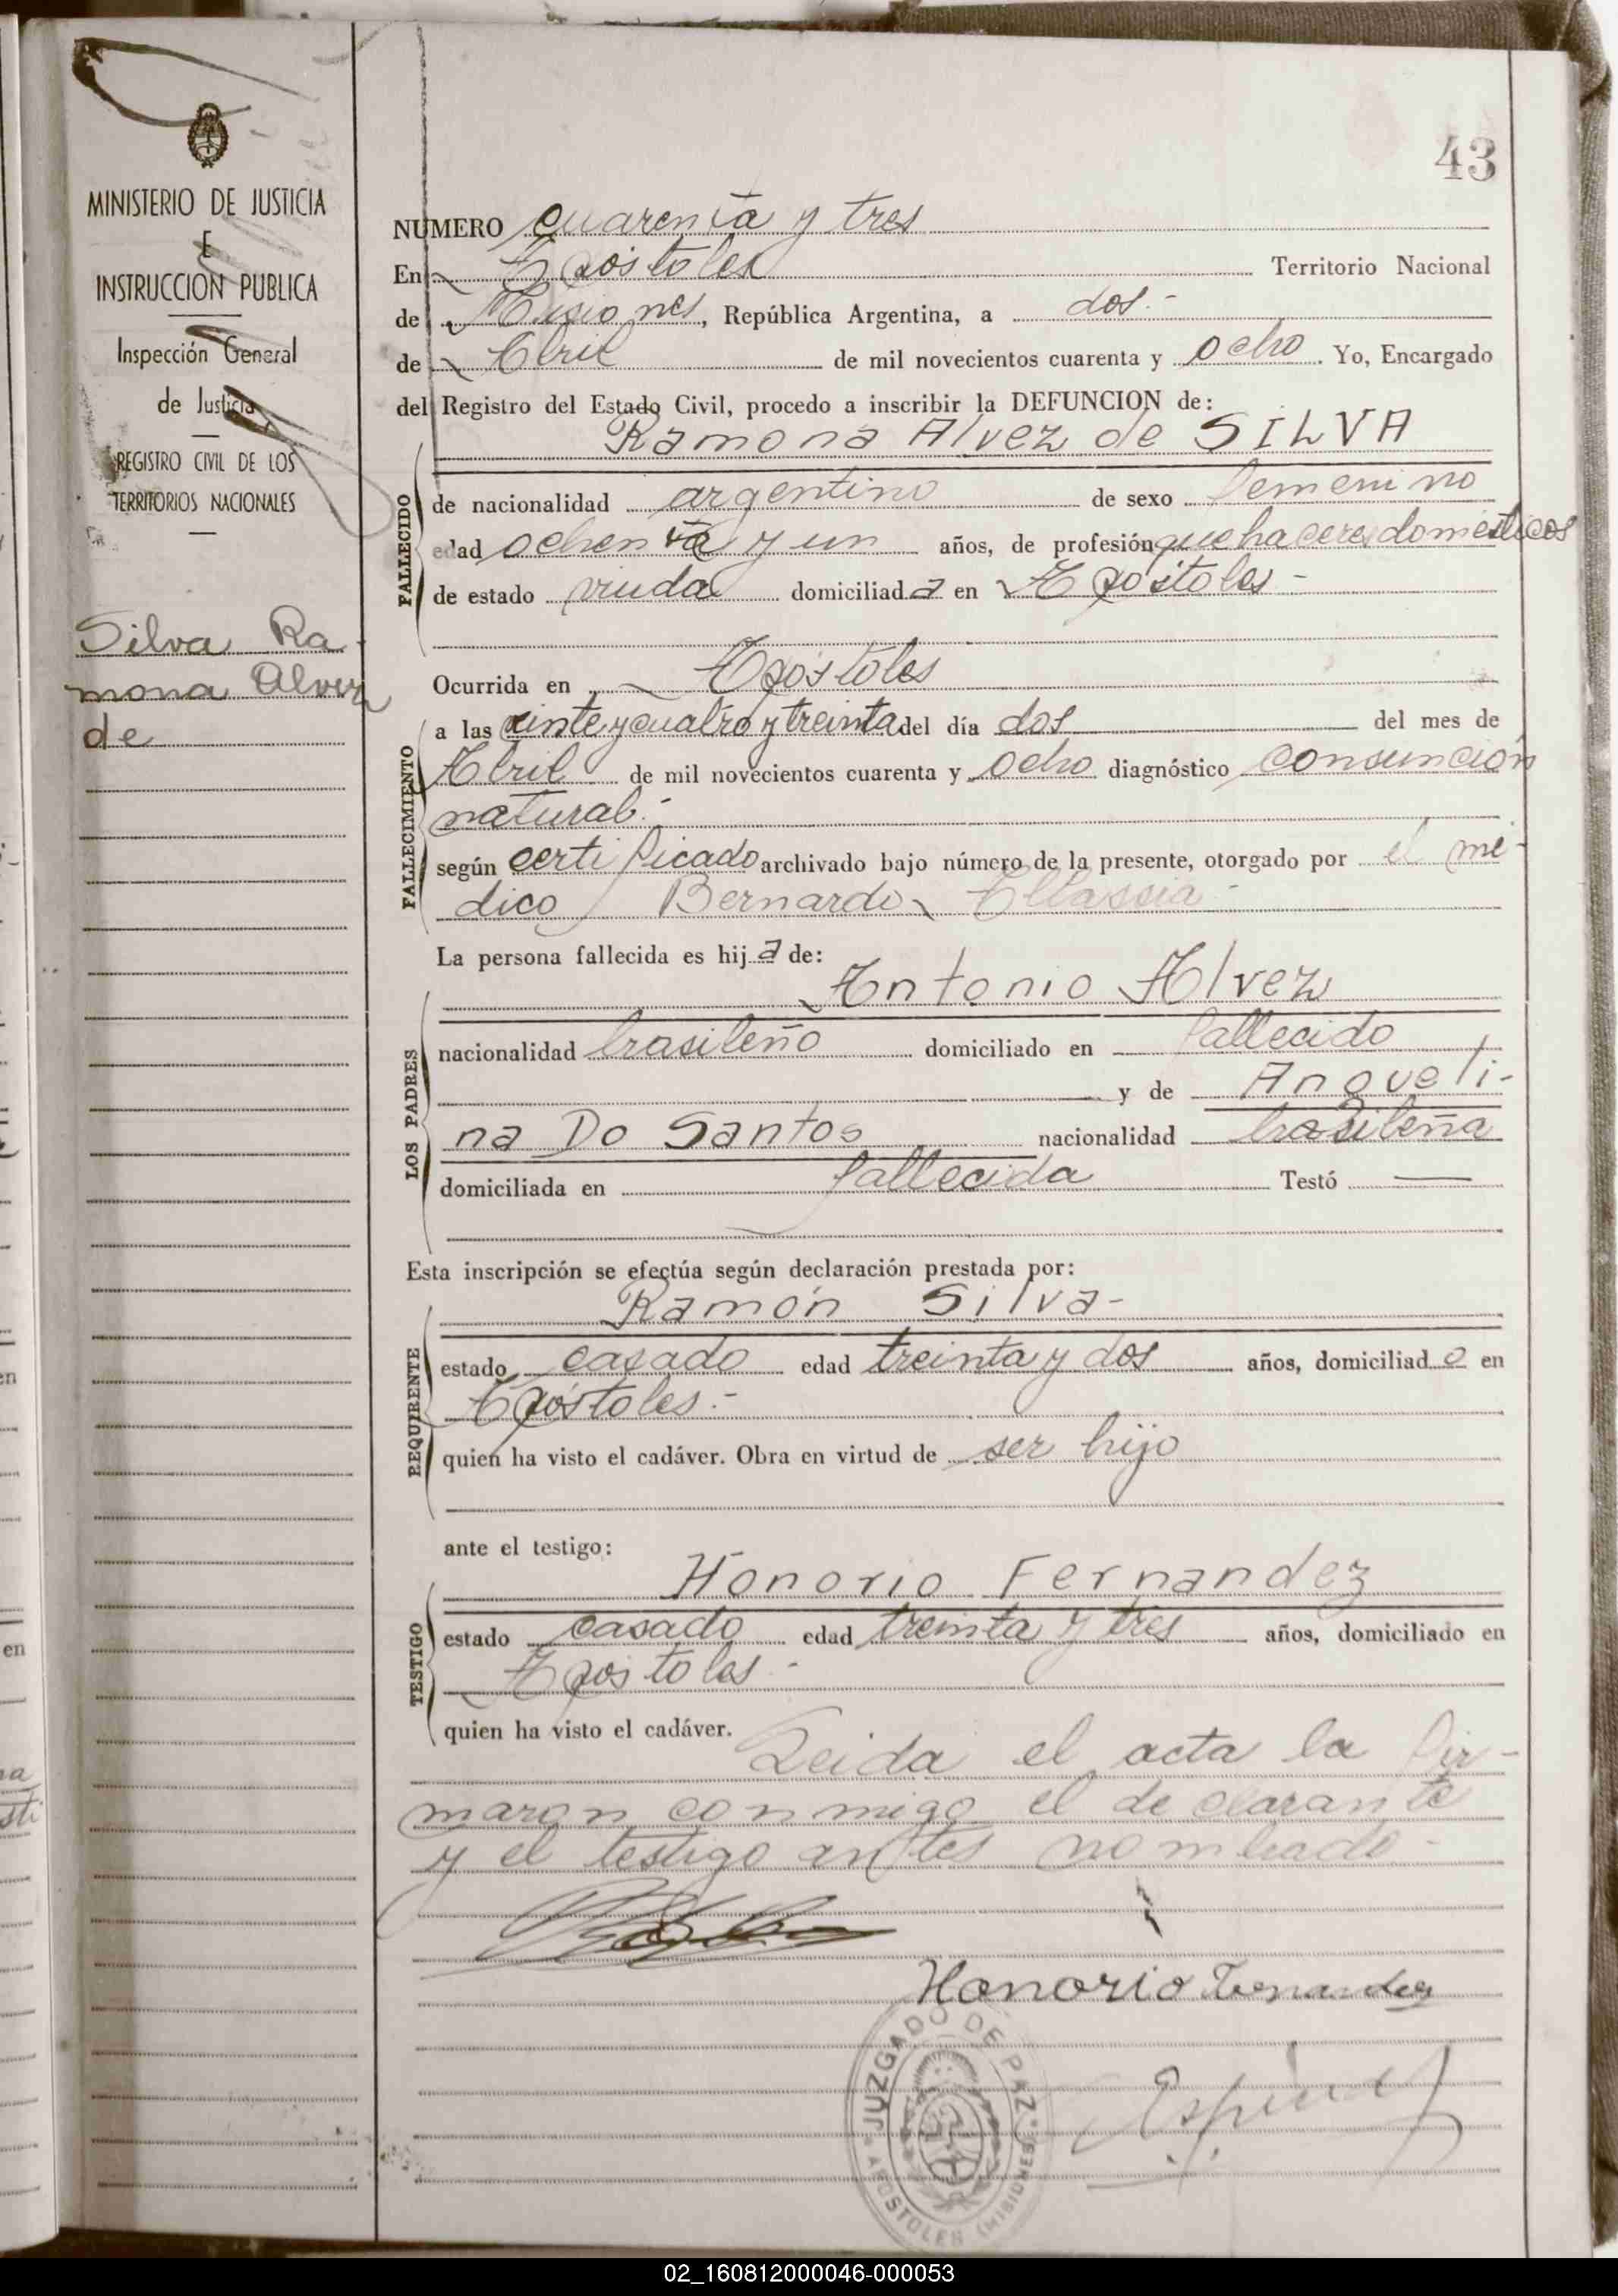 43
MINISTERIO DE JUSTICIA
E
INSTRUCCION PUBLICA
Inspección General
de Justicia
REGISTRO CIVIL DE LOS
TERRITORIOS NACIONALES
Silva Ra-
mona Alvez
de
NUMERO cuarenta y tres
En Apóstoles Territorio Nacional
de Misiones, República Argentina, a dos.-
de Abril de mil novecientos cuarenta y ocho. Yo, Encargado
del Registro del Estado Civil, procedo a inscribir la DEFUNCION de:
Ramona Alvez de SILVA
FALLECIDO
de nacionalidad argentino de sexo femenino
edad ochenta y un años, de profesión quehaceres domésticos
de estado viuda domiciliada en Apóstoles-
Ocurrida en Apóstoles
FALLECIMIENTO
a las veinte y cuatro y treinta del día dos del mes de
Abril de mil novecientos cuarenta y ocho diagnóstico consunción
natural.-
según certificado archivado bajo número de la presente, otorgado por el mé-
dico Bernardo
La persona fallecida es hija de:
LOS PADRES
Antonio Alvez
nacionalidad brasileño domiciliado en fallecido
y de Angueli-
na Do Santos nacionalidad brasileña
domiciliada en fallecida Testó —
Esta inscripción se efectúa según declaración prestada por:
REQUIRENTE
Ramón Silva-
estado casado edad treinta y dos años, domiciliado en
Apóstoles.-
quien ha visto el cadáver. Obra en virtud de ser hijo
ante el testigo:
TESTIGO
Honorio Fernandez
estado casado edad treinta y tres años, domiciliado en
Apóstoles.-
quien ha visto el cadáver. Leida el acta la fir-
maron conmigo el declarante
y el testigo antes nombrado-
Honorio Fernandez
JUZGADO DE PAZ
APOSTOLES (MISIONES)
02_160812000046-000053